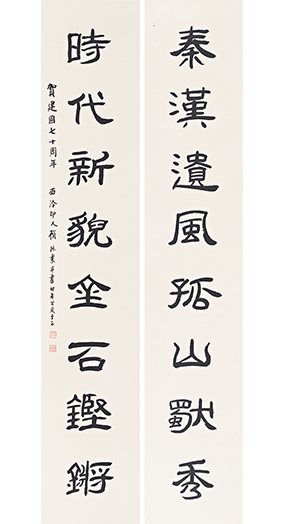 秦漢遺風孤山獻秀
時代新貌金石鏗鏘
賀建國七十周年 西泠印人